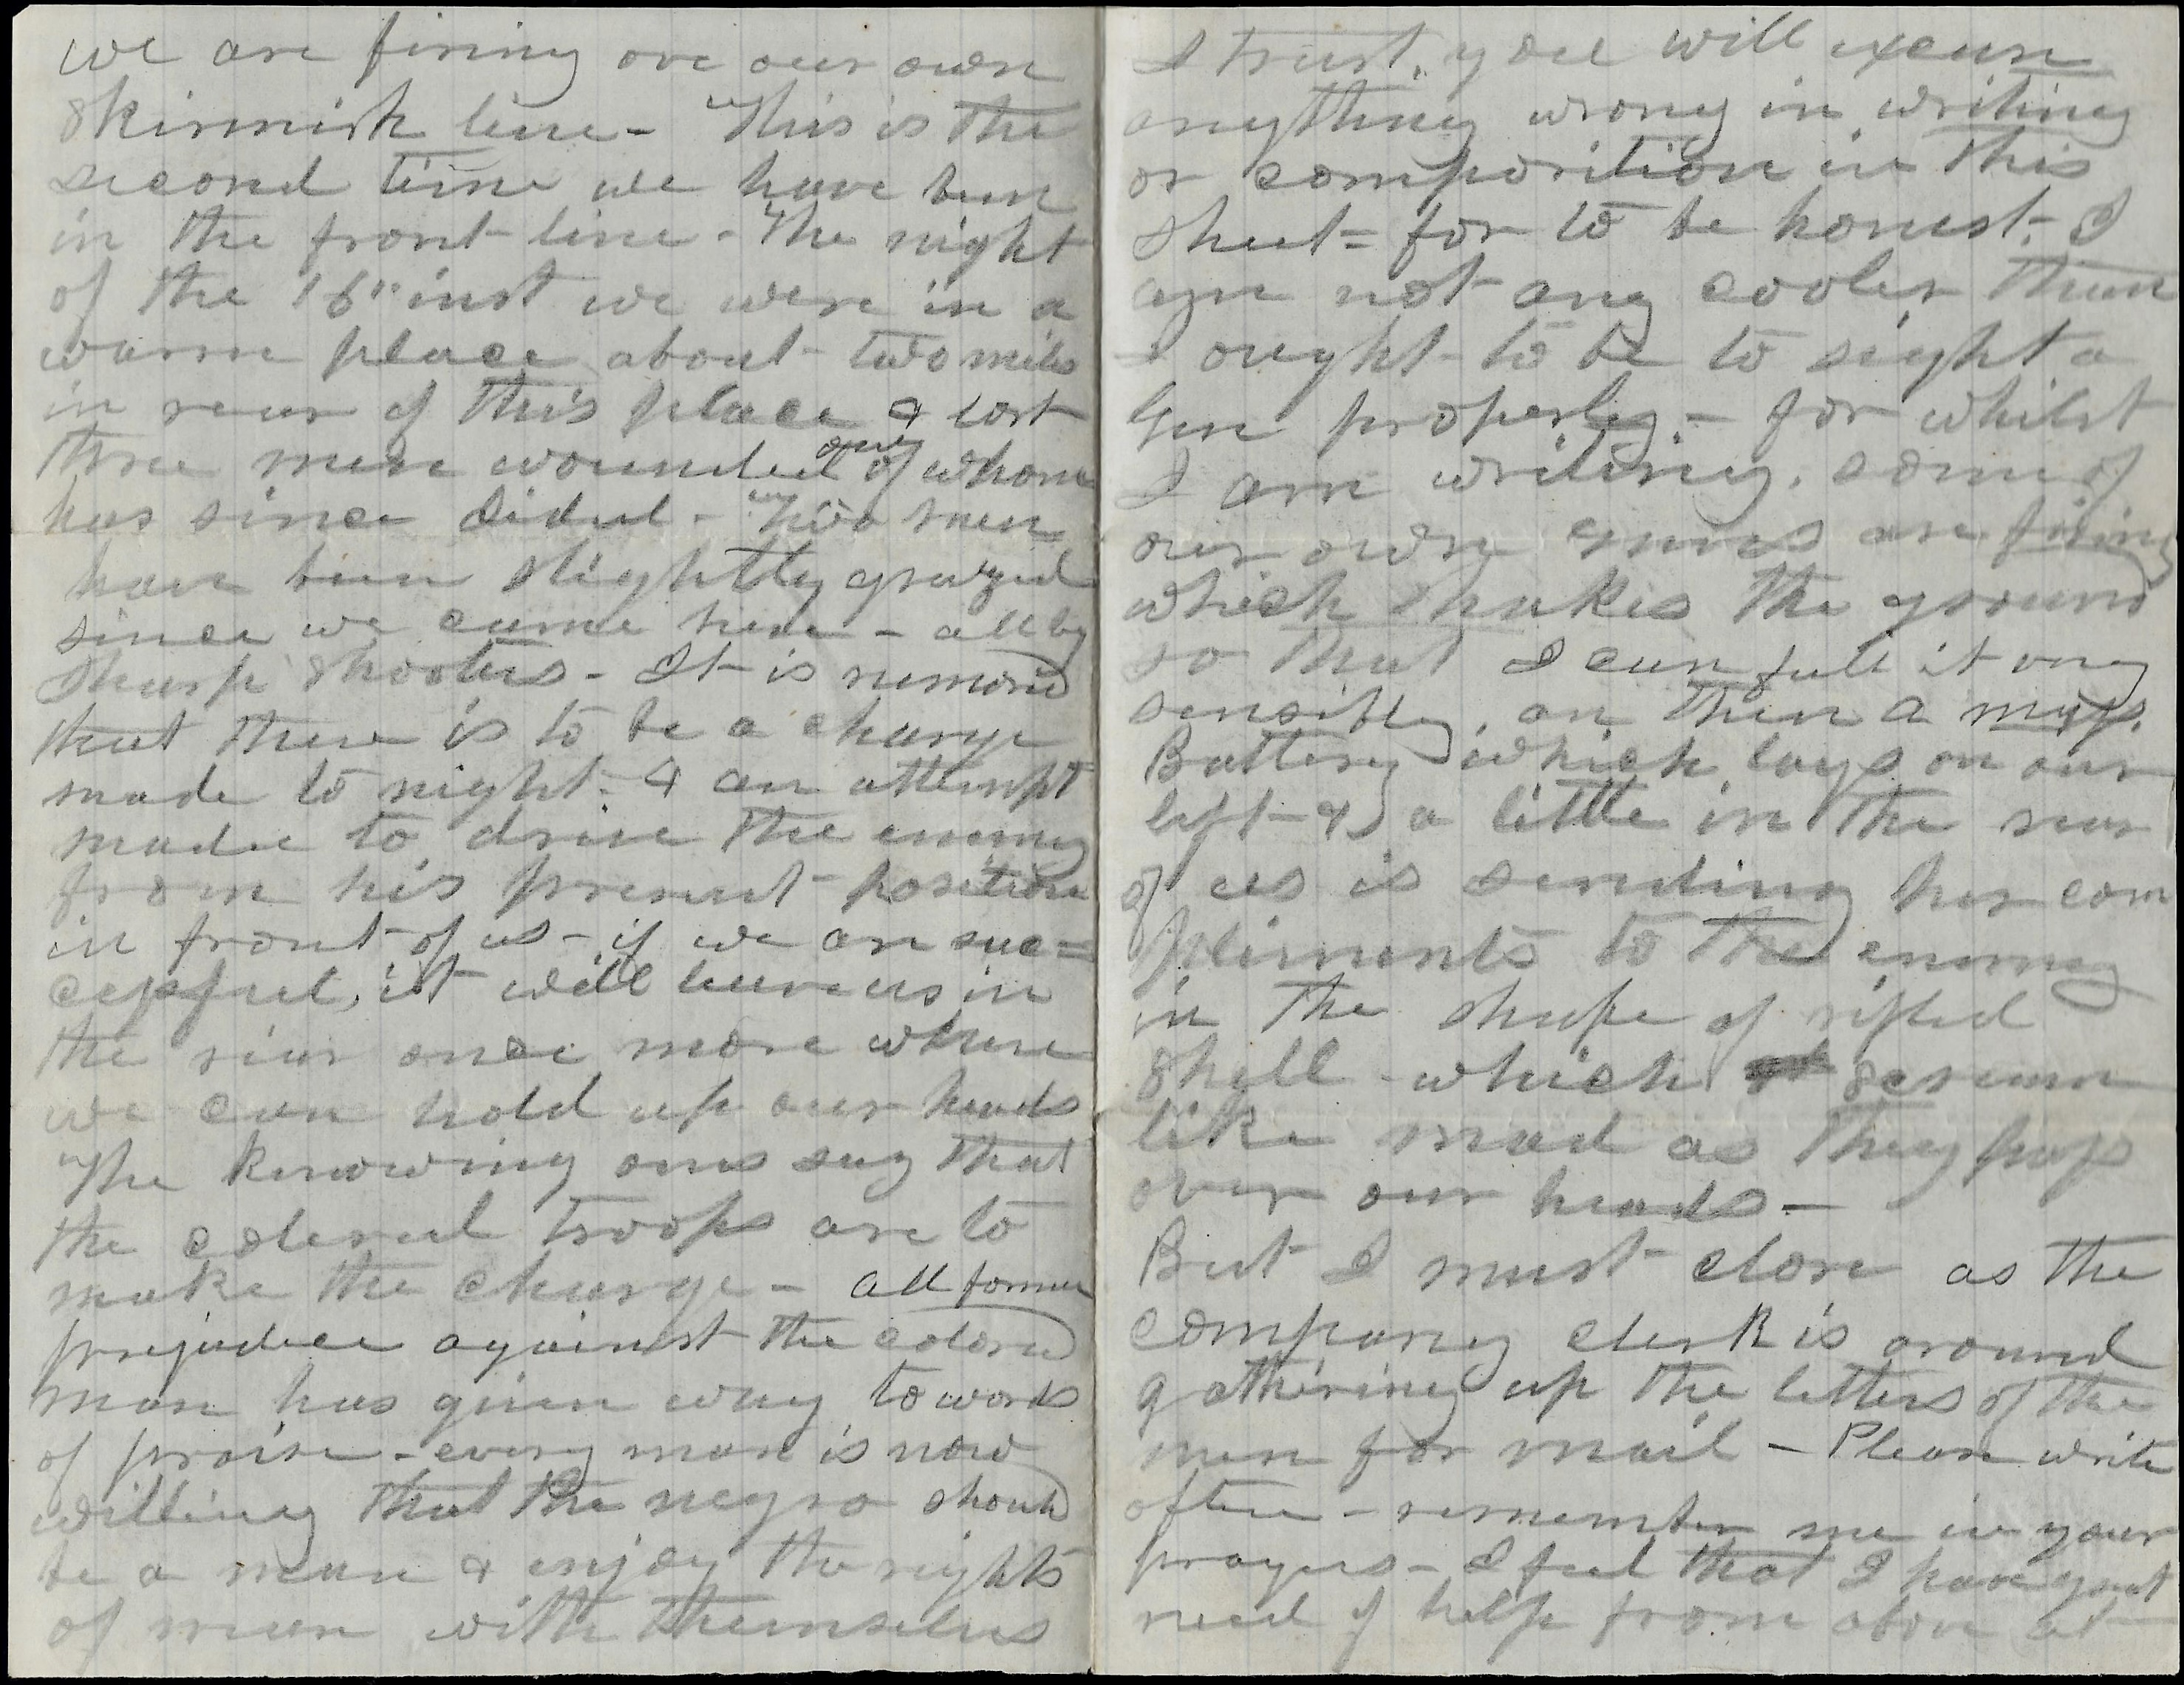 we are firing ove our own
skirmish line - This is the
second time we have been
in the front line - The night
of the 16" inst we were in a
warm place about two miles
in rear of this place & lost
three men wounded one of whom
has since dided - Two men
have been slightly grazed
since we came here - all by
Sharp Shooters - It is rumored
that there is to be a charge
made to night - & an attempt
made to drive the enemy
from his present position
in front of us - if we are suc=
cessful, it will leave us in
the rear once more where
we can hold up our heads
The knowing ones say that
the colered troops are to
make the charge - all former
prejudice against the colored
man has given way to words
of praise - every man is now
willing that the negro should
be a man & enjoy the rights
of man with themselves
I trust, you will excuse
anything wrong in writing
or composition in this
sheet - for to be honest, I
am not any cooler than
I ought to be to sight a
Gun properly. - for whilst
I am writing, some of
our own guns are firing
which shakes the ground
so that I can feel it very
sensibly, an then a mass.
Battery which lays on our
left - & a little in the rear
of us is sending her com
pliments to the enemy
in the shape of rifled
Shell - which scream
like mad as they pass
over our heads -
But I must close as the
company clerk is around
gathering up the letters of the
men for mail - Please write
often - remember me in your
prayers - I feel that I have great
need of help from above at